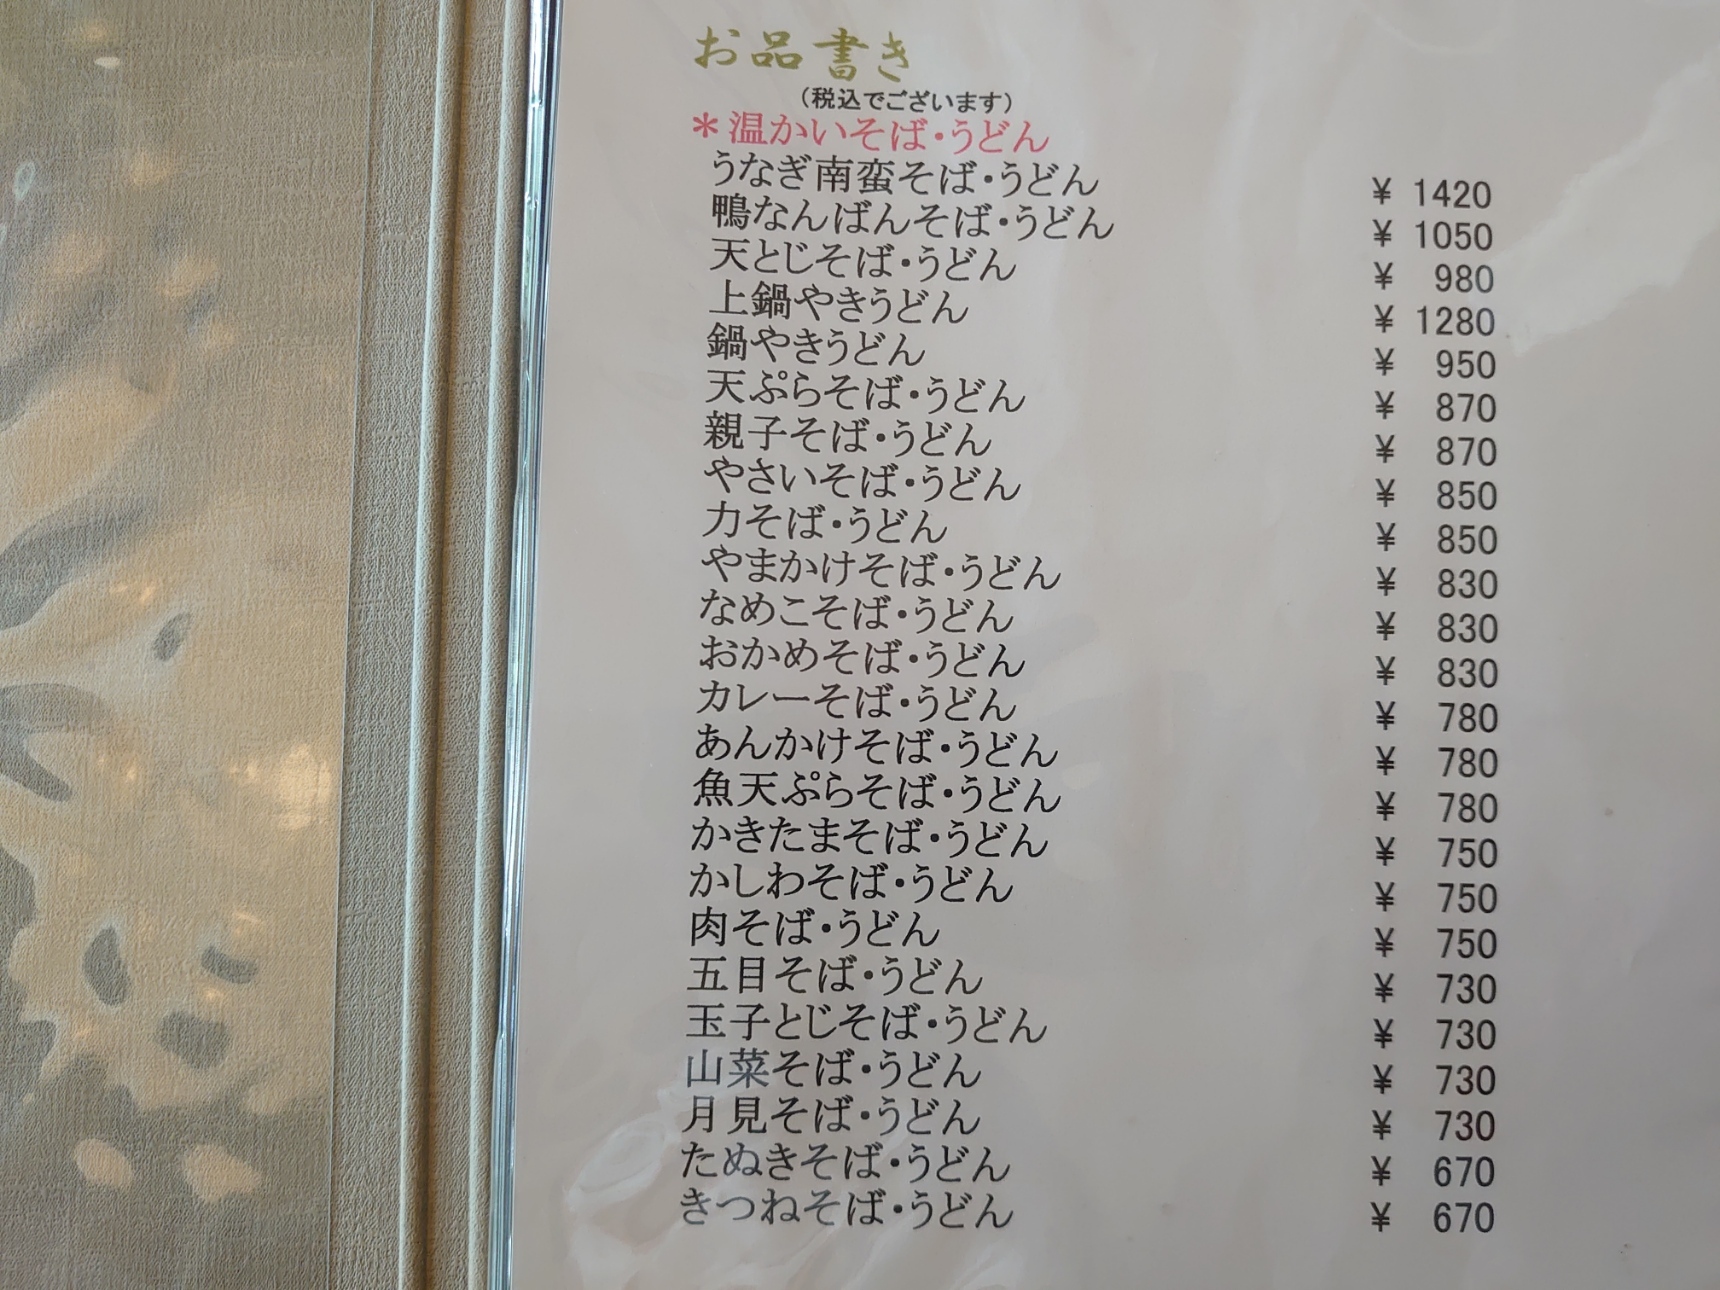 お品書き
(税込でございます)
＊温かいそば・うどん
うなぎ南蛮そば・うどん ¥ 1420
鴨なんばんそば・うどん ¥ 1050
天とじそば・うどん ¥ 980
上鍋やきうどん ¥ 1280
鍋やきうどん ¥ 950
天ぷらそば・うどん ¥ 870
親子そば・うどん ¥ 870
やさいそば・うどん ¥ 850
力そば・うどん ¥ 850
やまかけそば・うどん ¥ 830
なめこそば・うどん ¥ 830
おかめそば・うどん ¥ 830
カレーそば・うどん ¥ 780
あんかけそば・うどん ¥ 780
魚天ぷらそば・うどん ¥ 780
かきたまそば・うどん ¥ 750
かしわそば・うどん ¥ 750
肉そば・うどん ¥ 750
五目そば・うどん ¥ 730
玉子とじそば・うどん ¥ 730
山菜そば・うどん ¥ 730
月見そば・うどん ¥ 730
たぬきそば・うどん ¥ 670
きつねそば・うどん ¥ 670